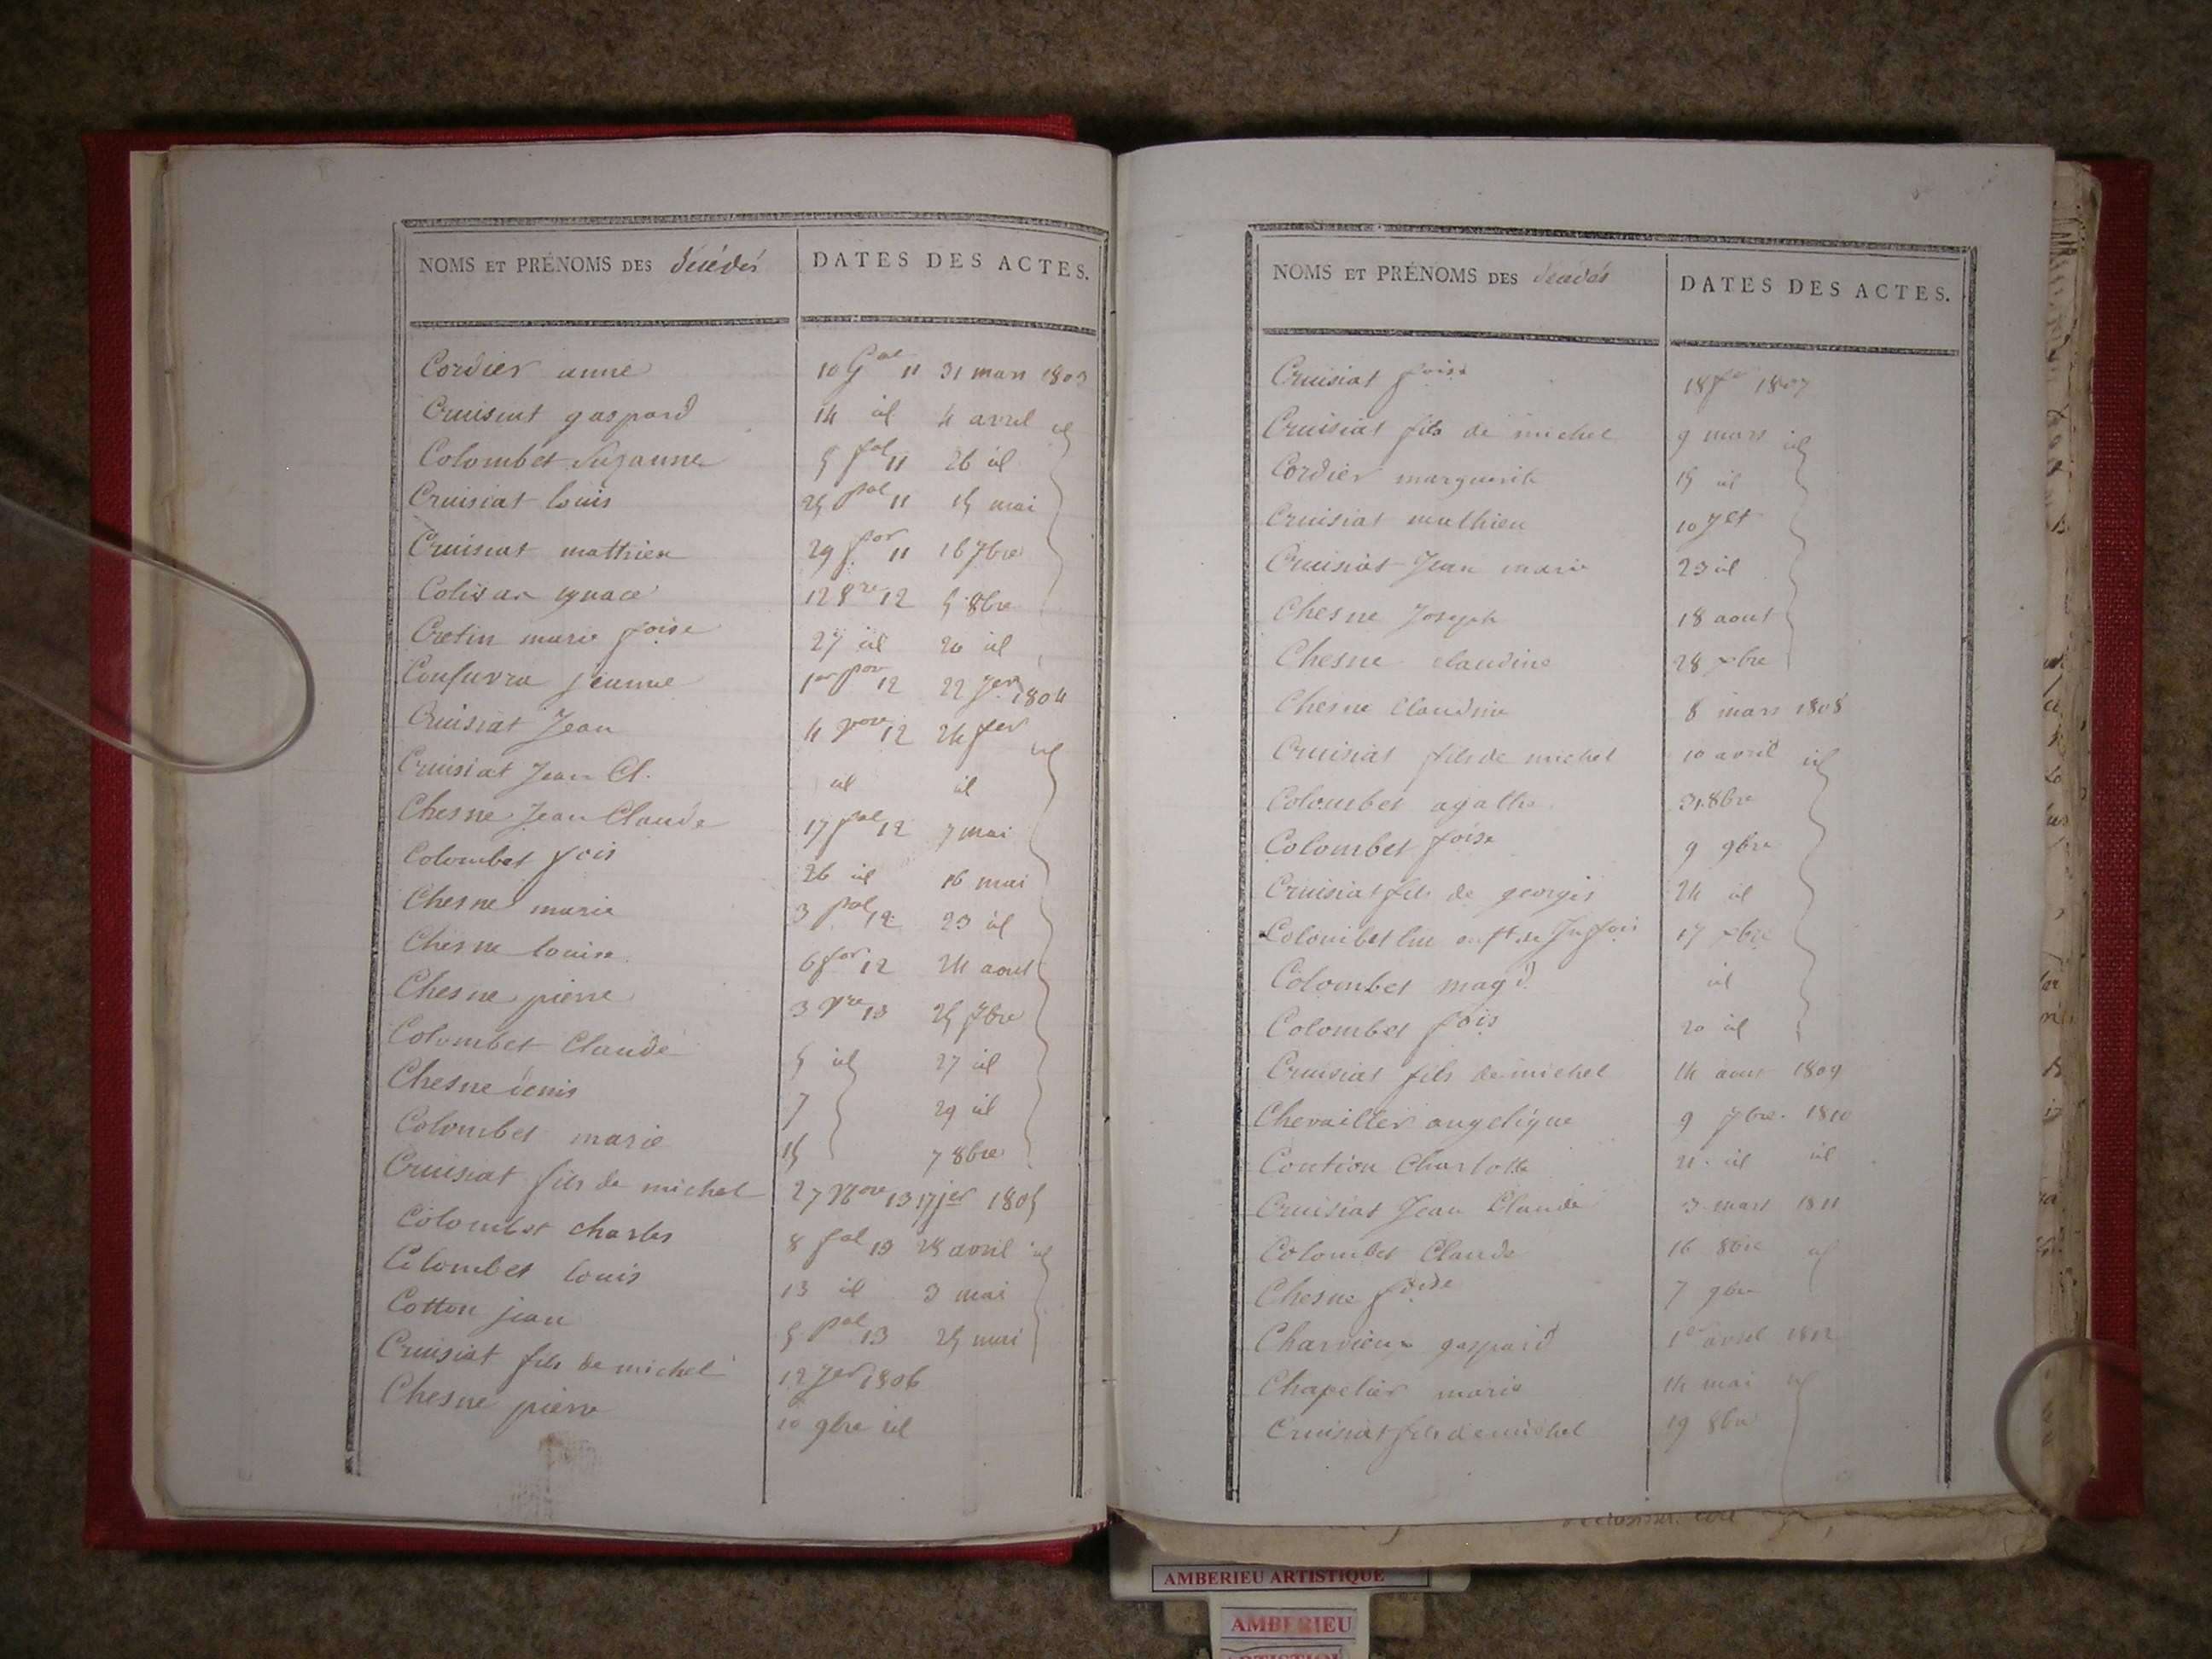 NOMS ET PRÉNOMS DES décédés DATES DES ACTES.
Cordier anne 10 Gal 11 31 mars 1803
Cruisiat gaspard 14 id 4 avril id
Colombet Suzanne 5 fal 11 26 id
Cruisiat louis 25 fal 11 15 mai
Cruisiat matthieu 29 for 11 16 7bre
ignace 12 12 5 8bre
Cretin marie foise 27 id 20 id
jeanne 1er 12 22 1804
Cruisiat Jean 4 12 24
Cruisiat Jean Cl. id id
Chesne Jean Claude 17 12 7 mai
Colombet fois 26 id 16 mai
Chesne marie 3 pal 12 23 id
Chesne louise 6 for 12 24 aout
Chesne pierre 3 13 25 7bre
Colombet Claude 5 id 27 id
Chesne denis 7 29 id
Colombet marie 15 7 8bre
Cruisiat fils de michel 27 13 17 jer 1805
Colombet charles 8 fal 13 28 avril id
Colombet louis 13 id 3 mai
Cotton jean 5 pal 13 25 mai
Cruisiat fils de michel 12 1806
Chesne pierre 10 9bre id
NOMS ET PRÉNOMS DES décédés DATES DES ACTES.
Cruisiat foise 18 1807
Cruisiat fils de michel 9 mars id
Cordier marguerite 15 id
Cruisiat mathieu 10
Cruisiat Jean marie 23 id
Chesne Joseph 18 aout
Chesne claudine 28 xbre
Chesne Claudine 8 mars 1808
Cruisiat fils de michel 10 avril id
Colombet agathe 31 8bre
Colombet foise 9 9bre
Cruisiat fils de georges 24 id
Colombet de fois 17 xbre
Colombet magd. id
Colombet fois 20 id
Cruisiat fils de michel 14 aout 1809
Chevallier angelique 9 7bre 1810
Charlotte 21 id id
Cruisiat Jean Claude 3 mars 1811
Colombet Claude 16 8bre id
Chesne foise 7 9bre
gaspard 1er avril 1812
Chapelier marie 14 mai id
Cruisiat fils de michel 19 8bre
AMBERIEU ARTISTIQUE
AMBERIEU